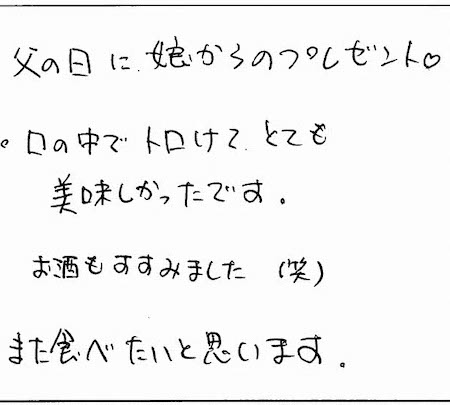 父の日に、娘からのプレゼント♡
。口の中でトロけて、とても
美味しかったです。
お酒もすすみました (笑)
また食べたいと思います。